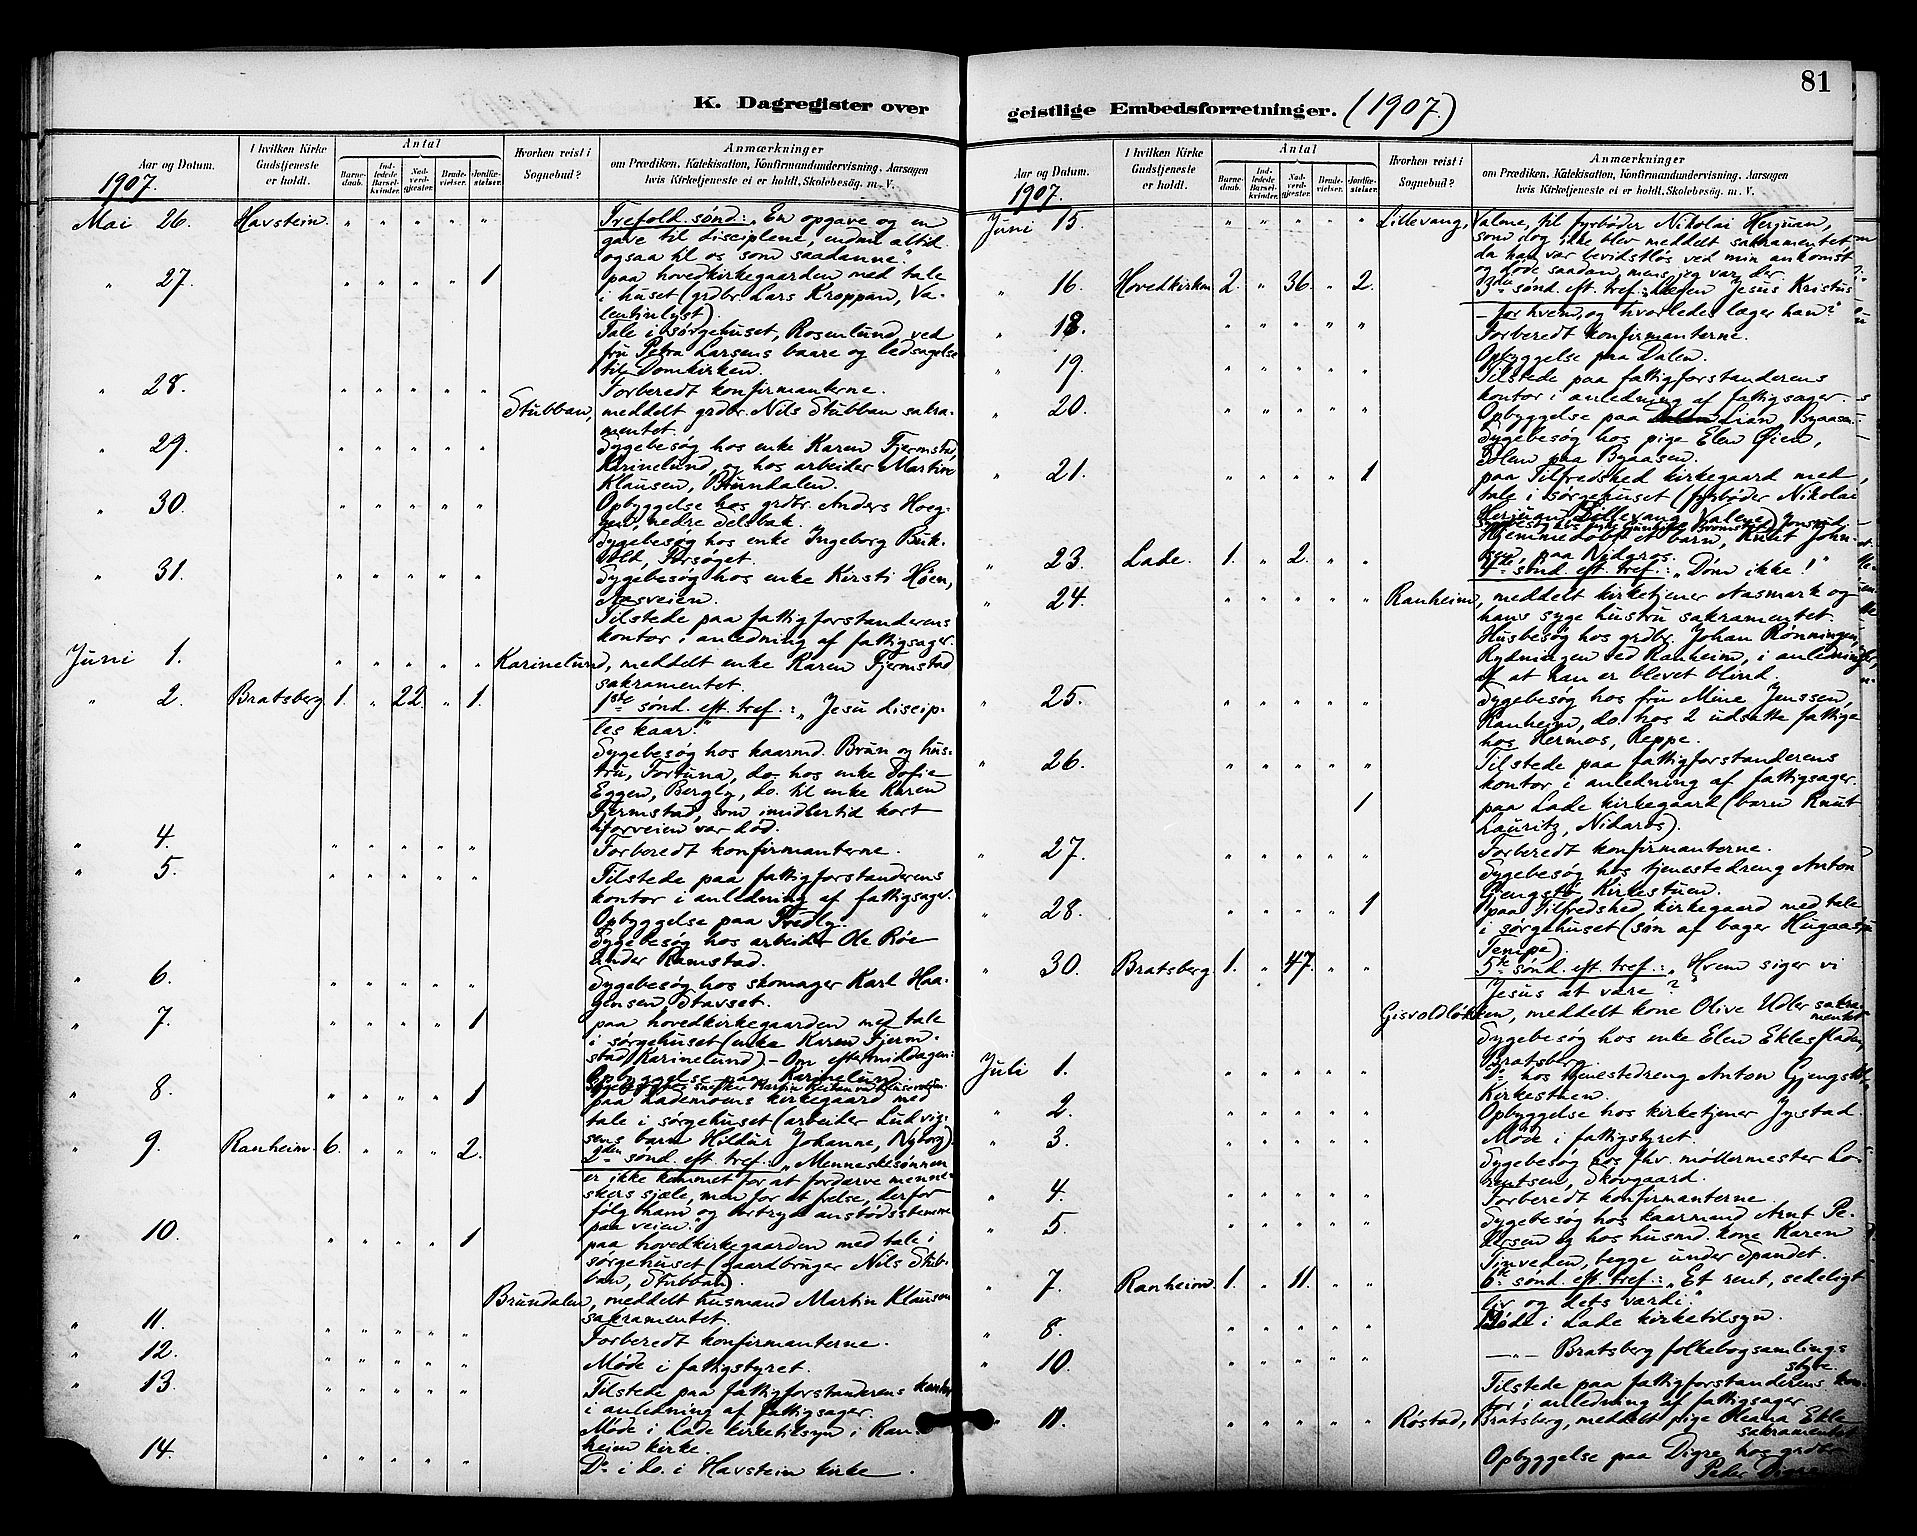 K. Dagregister over
Aar og Datum.
I hvilken Kirke Gudstjeneste er holdt.
Antal
Barnedaab.
Indledede Barselkvinder.
Nadverdgjester.
Brudevielser.
Jordfæstelser.
Hvorhen reist i Sognebud?
Anmærkninger
om Prædiken, Katekisation, Konfirmandundervisning, Aarsagen
hvis Kirketjeneste ei er holdt, Skolebesøg. m. V.
1907.
Mai 26. Havstein. " " " " " Trefold. sønd: „En opgave og en
gave til disciplene, endnu altid
ogsaa til os som saadanne."
" 27. " " " " 1 paa hovedkirkegaarden med tale
i huset (grdbr. Lars Kroppan, Va-
lentinlyst).
Tale i sørgehuset, Rosenlund, ved
fru Petra Larsens baare og ledsagelse
til Domkirken.
" 28. " " " " " Forberedt konfirmanterne.
Stubban, meddelt grdbr. Nils Stubban sakra-
mentet.
" 29. " " " " " Sygebesøg hos enke Karen Fjermstad,
Karinelund, og hos arbeider Martin
Klausen, Brundalen.
" 30. " " " " " Opbyggelse hos grdbr. Anders Hoeg-
gen, nedre Selsbak.
Sygebesøg hos enke Ingeborg Buk-
vold, Forsøget.
" 31. " " " " " Sygebesøg hos enke Kirsti Høen,
Aasveien.
Tilstede paa fattigforstanderens
kontor i anledning af fattigsager.
Juni 1. " " " " " Karinelund, meddelt enke Karen Fjermstad
sakramentet.
" 2. Bratsberg 1. " 22. " 1. 1ste sønd. eft. tref.: „Jesu discip-
les kaar."
Sygebesøg hos kaarmd. Brun og hus-
tru, Fortuna, do. hos enke Sofie
Eggen, Bergly, do. til enke Karen
Fjermstad, som imidlertid kort
iforveien var død.
" 4. " " " " " Forberedt konfirmanterne.
" 5. " " " " " Tilstede paa fattigforstanderens
kontor i anledning af fattigsager.
Opbyggelse paa Fredly.
Sygebesøg hos arbeider Ole Röe
under Ramstad.
" 6. " " " " " Sygebesøg hos skomager Karl Haa-
gensen, Stavset.
" 7. " " " " 1 paa hovedkirkegaarden med tale
i sørgehuset (enke Karen Fjerm-
stad, Karinelund). - Om eftermiddagen:
Opbyggelse paa Karinelund.
" 8. " " " " 1 paa Lademoens kirkegaard med
tale i sørgehuset (arbeider Ludvig-
sens barn Hildur Johanne, Nyborg).
" 9. Ranheim. 6. " " " 2. 2den sønd. eft. tref.: „Menneskesønnen
er ikke kommet for at fordærve menne-
skers sjæle, men for at frelse, derfor
følg ham og bortryd anstødsstenene
paa veien."
" 10. " " " " 1 paa hovedkirkegaarden med tale i
sørgehuset (gaardbruger Nils Stub-
ban, Stubban).
Brundalen, meddelt husmand Martin Klausen
sakramentet.
" 11. " " " " " Forberedt konfirmanterne.
" 12. " " " " " Møde i fattigstyret.
" 13. " " " " " Tilstede paa fattigforstanderens kontor
i anledning af fattigsager.
Møde i Lade kirketilsyn i Ran-
heim kirke.
" 14. " " " " " Do i do. i Havstein kirke.
81
geistlige Embedsforretninger. (1907.)
Aar og Datum.
I hvilken Kirke Gudstjeneste er holdt.
Antal
Barnedaab.
Indledede Barselkvinder.
Nadverdgjester.
Brudevielser.
Jordfæstelser.
Hvorhen reist i Sognebud?
Anmærkninger
om Prædiken, Katekisation, Konfirmandundervisning, Aarsagen
hvis Kirketjeneste ei er holdt, Skolebesøg. m. V.
1907.
Juni 15. " " " " " Lillevang, Valene, til fyrbøder Nikolai Herjuan,
som dog ikke blev meddelt sakramentet,
da han var bevidstløs ved min ankomst
og døde saadan, mens jeg var der.
" 16. Hovedkirken 2. " 36. " 2. 3die sønd. eft. tref.: „Lægen Jesus Kristus
- for hvem, og hvorledes læger han?"
" 18. " " " " " Forberedt konfirmanterne.
Opbyggelse paa Dalen.
" 19. " " " " " Tilstede paa fattigforstanderens
kontor i anledning af fattigsager.
" 20. " " " " " Opbyggelse paa Lian, Byaasen.
Sygebesøg hos pige Elen Øien,
Solem paa Byaasen.
" 21. " " " " 1 paa Tilfredshed kirkegaard med
tale i sørgehuset (fyrbøder Nikolai
Herjuan, Lillevang, Valene).
Hjemmedøbt et barn, Knut John-
sen, paa Nidaros.
" 23. Lade. 1. " 2. " " 4de sønd. eft. tref.: „Døm ikke!"
" 24. " " " " " Ranheim, meddelt kirketjener Aasmark og
hans syge hustru sakramentet.
Husbesøg hos grdbr. Johan Rønningen,
Rydningen ved Ranheim, i anledning
af at han er blevet blind.
" 25. " " " " " Sygebesøg hos fru Mine Jenssen,
Ranheim, do. hos 2 udsatte fattige
hos Hermos, Reppe.
" 26. " " " " " Tilstede paa fattigforstanderens
kontor i anledning af fattigsager.
1 paa Lade kirkegaard (barn Knut
Lauritz, Nidaros).
" 27. " " " " " Forberedt konfirmanterne.
Sygebesøg hos tjenestedreng Anton
Kirkestuen.
" 28. " " " " 1 paa Tilfredshed kirkegaard med tale
i sørgehuset (søn af bager Hugaas,
Tempe).
" 30. Bratsberg. 1. " 47. " " 5te sønd. eft. tref.: „Hvem siger vi
Jesus at være?"
Gisvoldløkken, meddelt kone Olive Udler sakra-
mentet.
Sygebesøg hos enke Elen Eklesfladen,
Bratsberg.
Juli 1. " " " " " Do hos tjenestedreng Anton
Kirkestuen.
" 2. " " " " " Opbyggelse hos kirketjener Jystad.
" 3. " " " " " Møde i fattigstyret.
Sygebesøg hos fhv. møllermester Lo-
rentsen, Skovgaard.
" 4. " " " " " Forberedt konfirmanterne.
" 5. " " " " " Sygebesøg hos kaarmand Arnt Pe-
dersen og hos husmd. kone Karen
Timveden, begge under Spandet.
" 7. Ranheim. 1. " 11. " " 6te sønd. eft. tref.: „Et rent, sedeligt
liv og dets værdi."
" 8. " " " " " Møde i Lade kirketilsyn.
" 10. " " " " " —"— Bratsberg folkebogsamlings
styre.
Tilstede paa fattigforstanderens kon-
tor i anledning af fattigsager.
" 11. " " " " " Røstad, Bratsberg, meddelt pige Oleana Ekle
sakramentet.
Opbyggelse paa Digre hos grdbr.
Peder Digre.